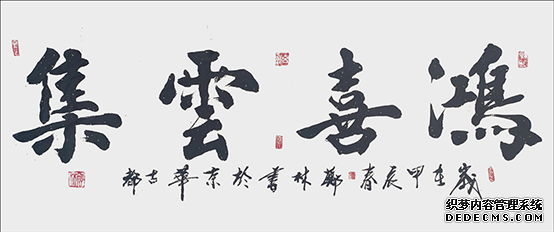 鴻喜雲集
歲在甲辰春鄭林書於京華古都
织梦内容管理系统
DEDECMS.COM